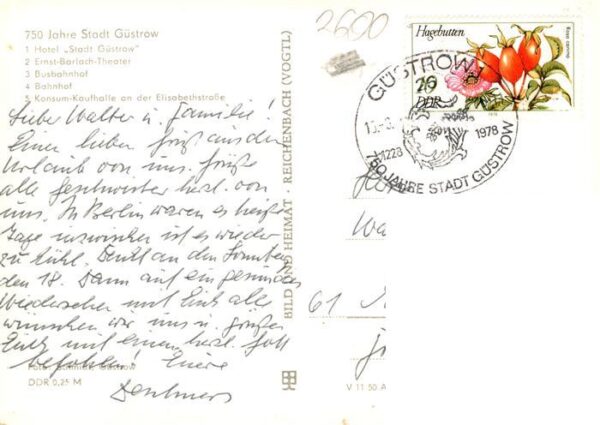 750 Jahre Stadt Güstrow
1 Hotel „Stadt Güstrow"
2 Ernst-Barlach-Theater
3 Busbahnhof
4 Bahnhof
5 Konsum-Kaufhalle an der Elisabethstraße
Lieber Walter u. Familie!
Einen lieben Gruß aus dem
Urlaub von uns. Grüße
alle Geschwister herzl. von
uns. In Berlin waren es heiße
Tage inzwischen ist es wieder
zu kühl. Denkt an den Sonntag
den 18. Dann auf ein gesundes
Wiedersehen mit Euch alle
wünschen wir uns u. grüßen
Euch mit einem herzl. Gott
befohlen! Eure
Foto: Güstrow
DDR 0,25 M
BILD UND HEIMAT · REICHENBACH (VOGTL)
2600
Hagebutten
Rosa canina
20
DDR
1978
GÜSTROW 1
1228
1978
750 JAHRE STADT GÜSTROW
61
V 11 50 A